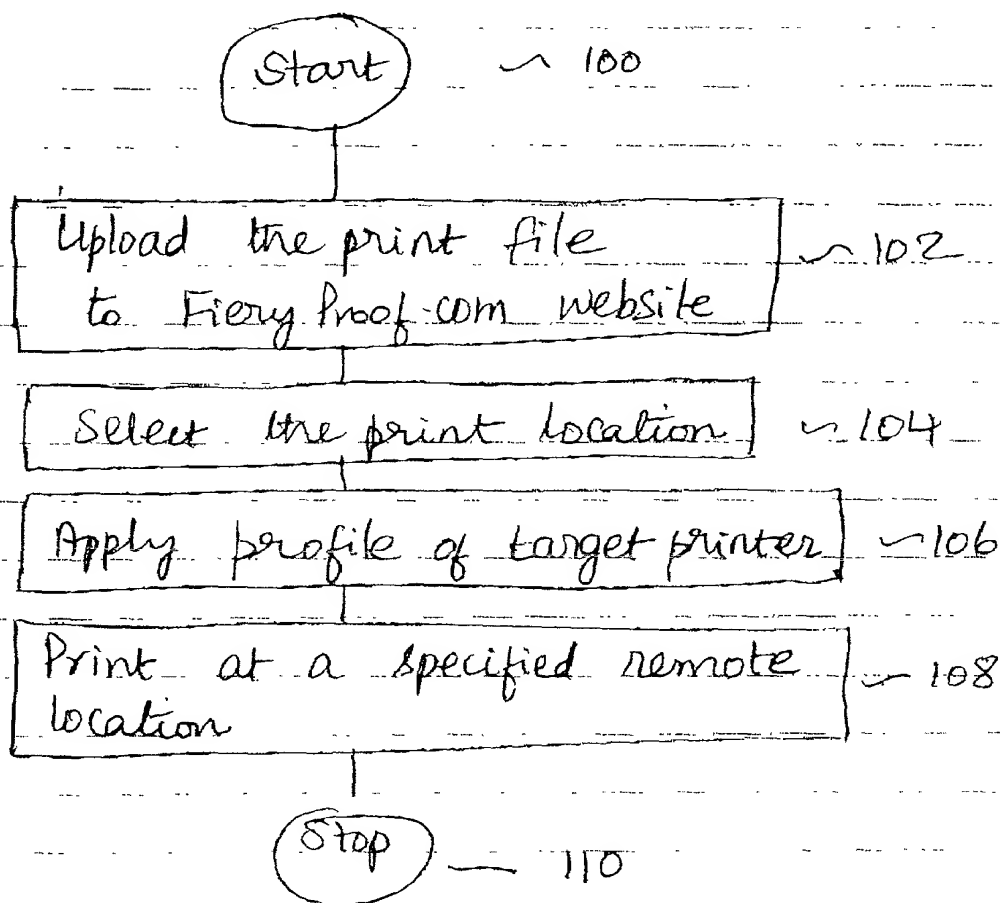 Start 100
Upload the print file
to FieryProof.com website 102
Select the print location 104
Apply profile of target printer 106
Print at a specified remote
location 108
Stop 110